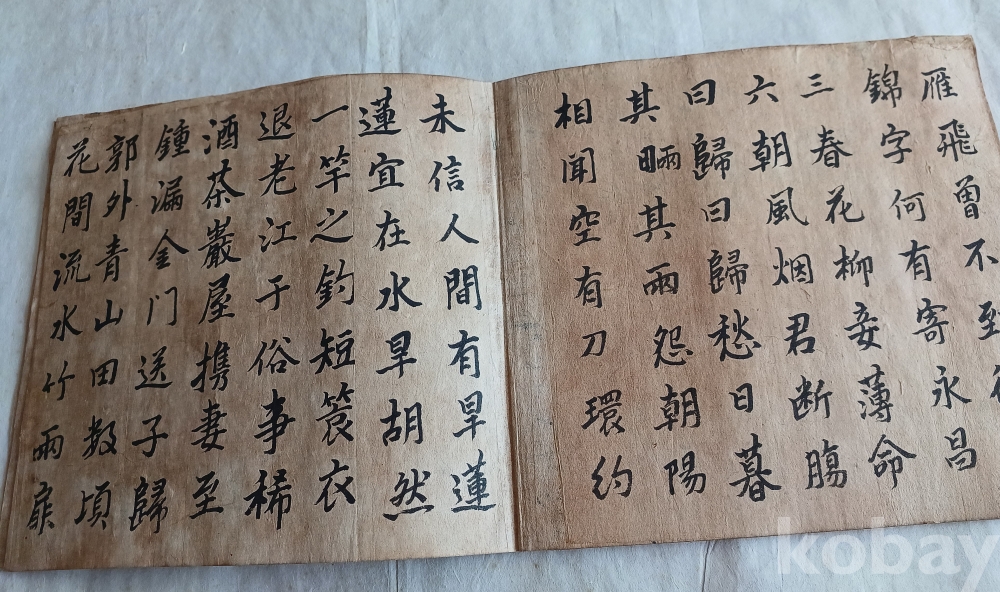 雁飛曾不到
錦字何有寄永昌
三春花柳妾薄命
六朝風烟君断膓
曰歸曰歸愁日暮
其其雨怨朝陽
相聞空有刀環約
未信人間有旱蓮
蓮宜在水旱胡然
一竿之釣短簑衣
退老江于俗事稀
酒茶巖屋携妻至
鍾漏金门送子歸
郭外青山田数頃
花間流水竹兩扉
kobay